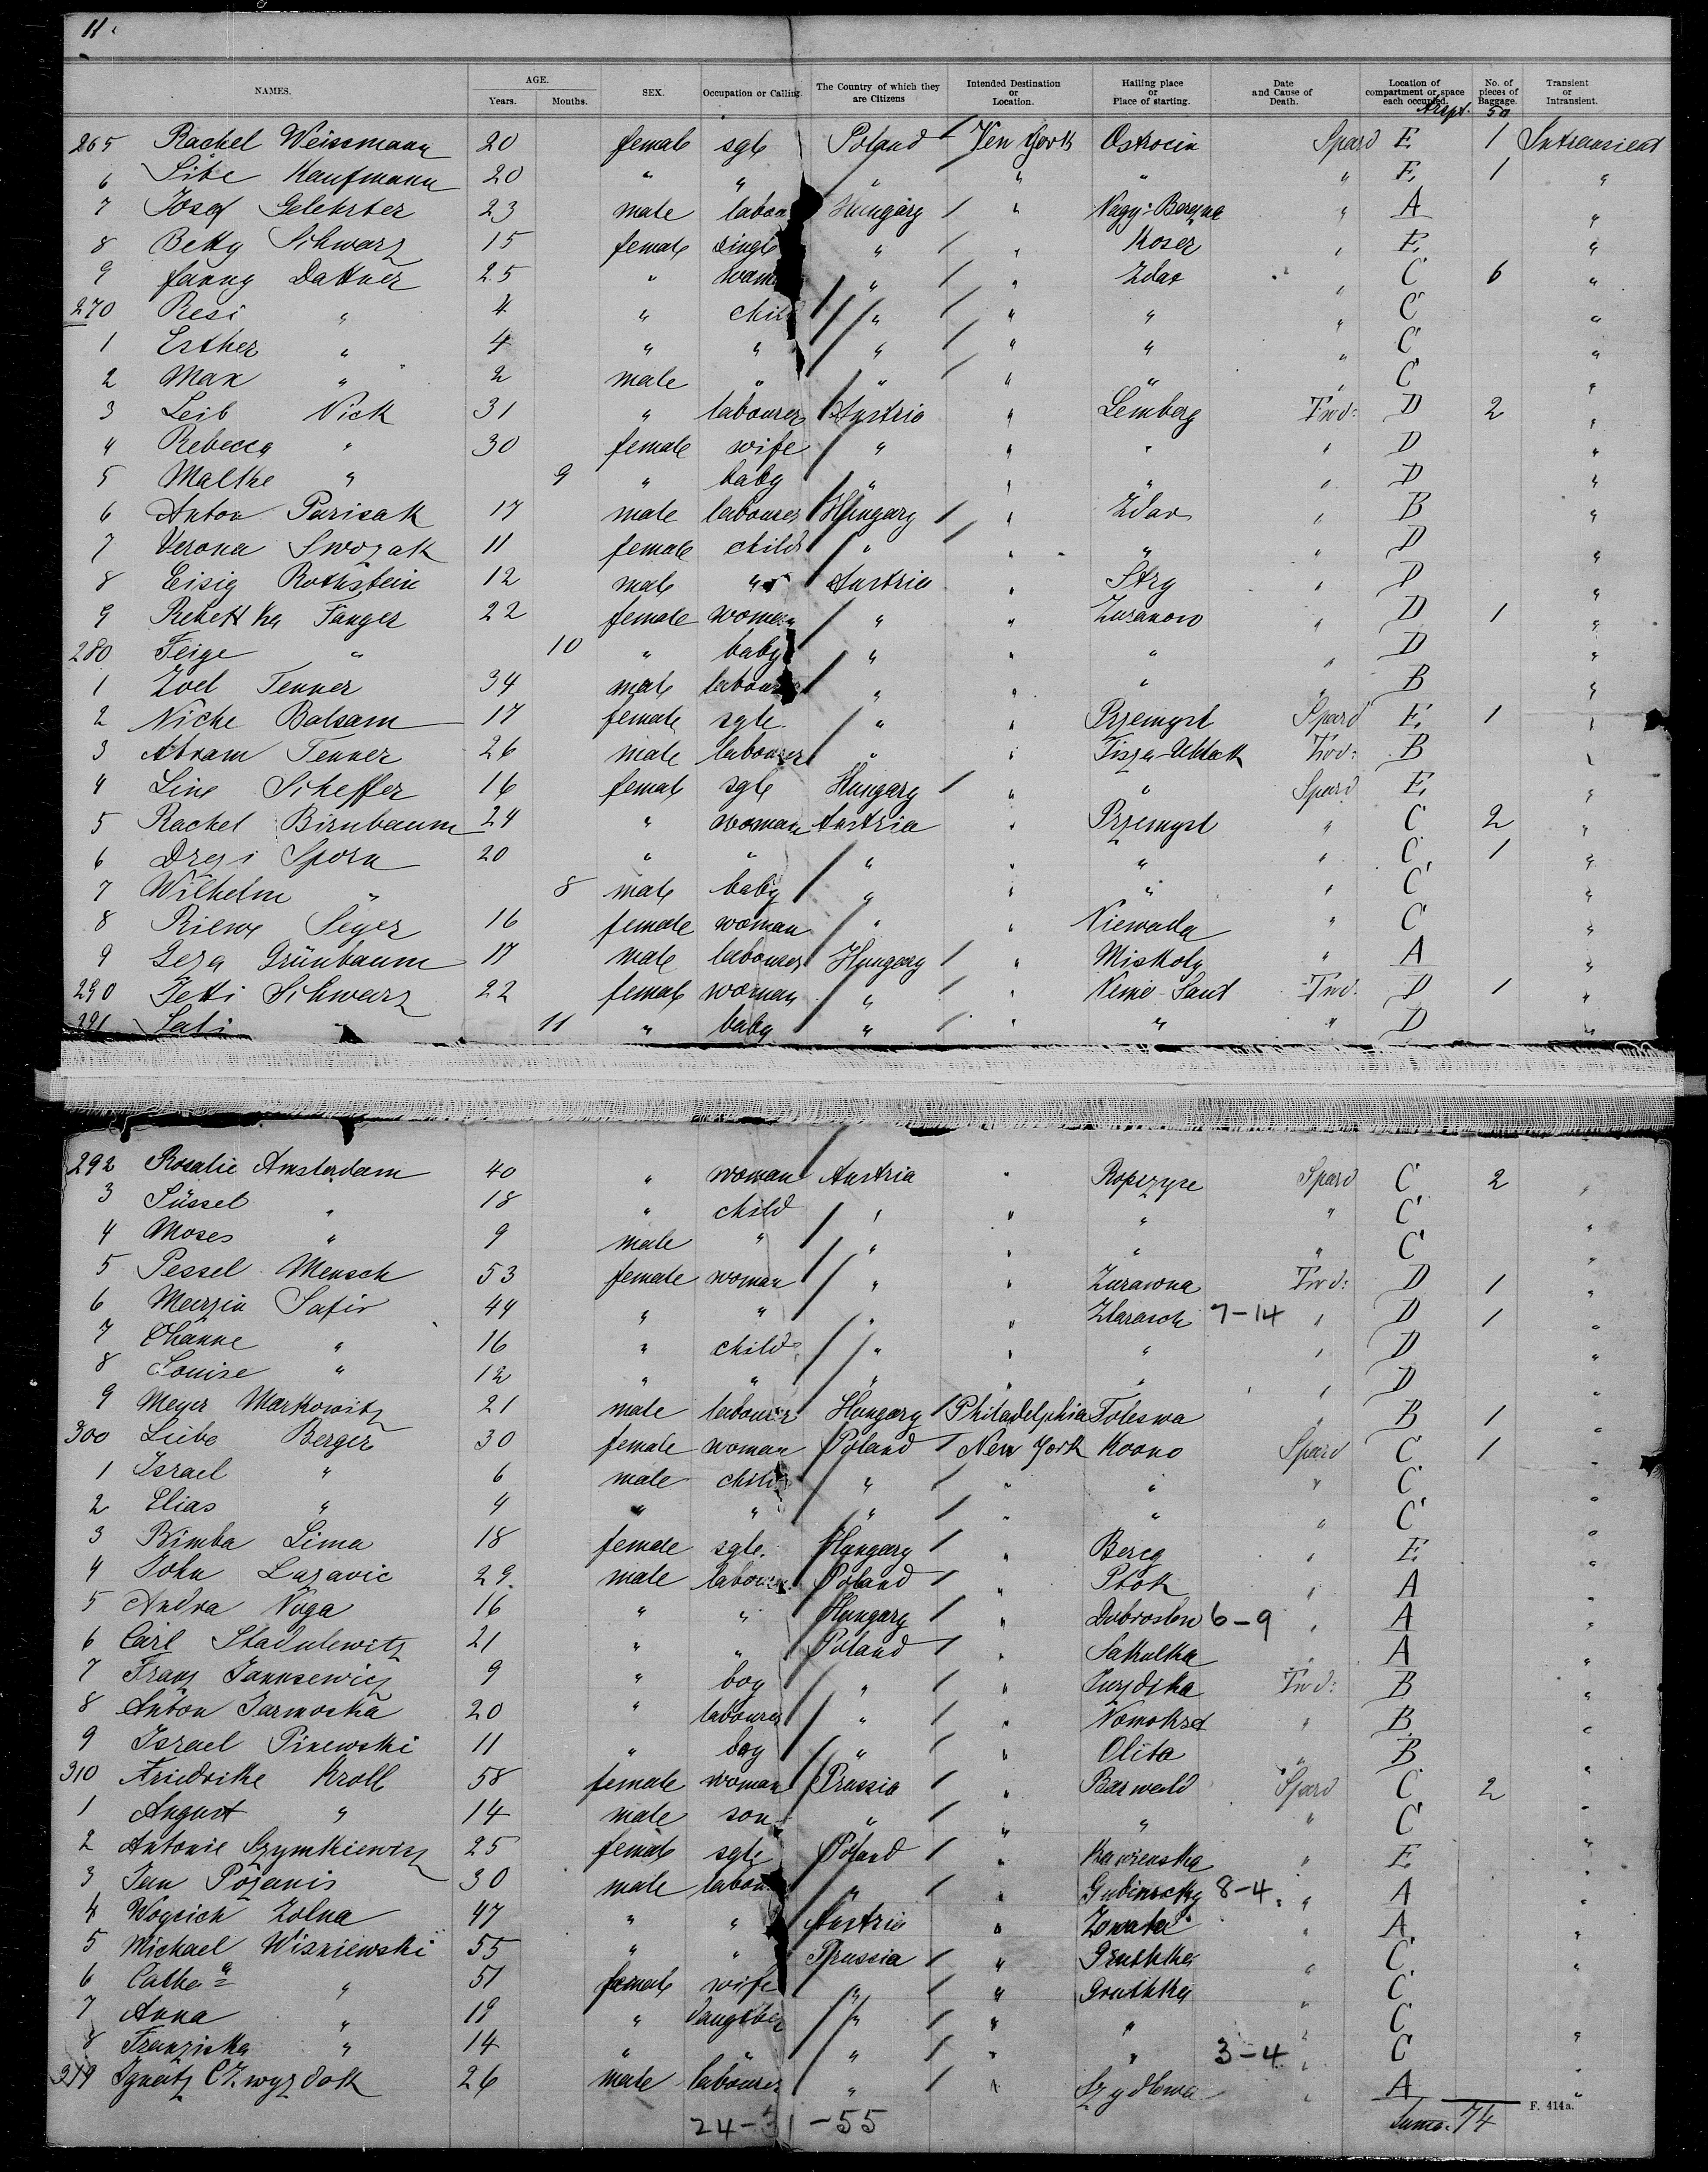 11.
NAMES. AGE. Years. Months. SEX. Occupation or Calling. The Country of which they are Citizens Intended Destination or Location. Hailing place or Place of starting. Date and Cause of Death. Location of compartment or space each occupied. No. of pieces of Baggage. Transient or Intransient.
50
265 Rachel Weissmann 20 female sgle Poland / New York Ostrocin Spard E 1 Intransient
6 Kaufmann 20 " " " " " " E 1 "
7 Josef Gelehrter 23 male labou Hungary / " " A "
8 Betty Schwarz 15 female single " / " Koser " E "
9 Fanny Dattner 25 " woma " / " Zdar " C 6 "
270 Resi " 4 " chil " / " " " C "
1 Esther " 4 " " " / " " " C "
2 Max " 2 male " " / " " " C "
3 Leib Nick 31 " labourer Austria " Lemberg Twd: D 2 "
4 Rebecca " 30 female wife " " " " D "
5 Malthe " 9 " baby " " " " D "
6 Anton Parisak 17 male labourer Hungary / " Zdar " B "
7 Verona Swozak 11 female child " / " " " D "
8 Eisig Rothstein 12 male " Austria " Stry " D "
9 Fanger 22 female woman " " Zuranow " D 1 "
280 Feige " 10 " baby " " " " D "
1 Zoel Tenner 34 male labourer " " " " B "
2 Niche Balsam 17 female sgle. " " Przemysl Spard E 1 "
3 Abram Tenner 26 male labourer " " Tisza-Ublak Twd: B "
4 Line Scheffer 16 female sgle Hungary / " " Spard E "
5 Rachel Birnbaum 24 " woman Austria " Przemysl " C 2 "
6 Sporn 20 " " " " " " C 1 "
7 Wilhelm " 8 male baby " " " " C "
8 Seger 16 female woman " " Niewada " C "
9 Geza Grünbaum 17 male labourer Hungary / " Miskolz " A "
290 Jetti Schwarz 22 female woman " / " Twd. D 1 "
291 " 11 " baby " / " " " D "
292 Rosalie Amsterdam 40 " woman Austria " Ropczyce Spard C 2 "
3 Süssel " 18 " child " " " " C "
4 Moses " 9 male " " " " " C "
5 Pessel Mensch 53 female woman " " Zurawna Twd: D 1 "
6 Safir 44 " " " " 7-14 " D 1 "
7 Channe " 16 " child " " " " D "
8 Louise " 12 " " " " " " D "
9 Meyer Markowitz 21 male labourer Hungary / Philadelphia Toleswa " B 1 "
300 Liebe Berger 30 female woman Poland / New York Kovno Spard C 1 "
1 Israel " 6 male child " / " " " C "
2 Elias " 4 " " " / " " " C "
3 Rimba Lima 18 female sgle. Hungary / " Bereg " E "
4 John Lazavic 29 male labourer Poland / " Ptok " A "
5 Andra Noga 16 " " Hungary / " 6-9 " A "
6 Carl Stadulewitz 21 " " Poland / " Sakulka " A "
7 Franz Jannsewicz 9 " boy " / " Twd: B "
8 Anton Jarmoska 20 " labourer " / " " B "
9 Israel Pinewski 11 " boy " / " Olita " B "
310 Friedrike Kroll 58 female woman Prussia / " Barwald Spard C 2 "
1 August " 14 male son " " " " C "
2 Antonie Szymkiewicz 25 female sgle Poland / " " E "
3 Jan Pozanis 30 male labou " / " 8-4 " A "
4 Woycich Zolna 47 " " Austria " " A "
5 Michael Wisniewski 55 " " Prussia / " " C "
6 Catha " 51 female wife " / " C
7 Anna " 19 " daughter " / " " " C "
8 Franziska " 14 " " " / " " 3-4 " C
319 Ignatz Czwyzdok 26 male labourer " / " Szydlowa " A "
24-31-55
Suma. 74
F. 414a.